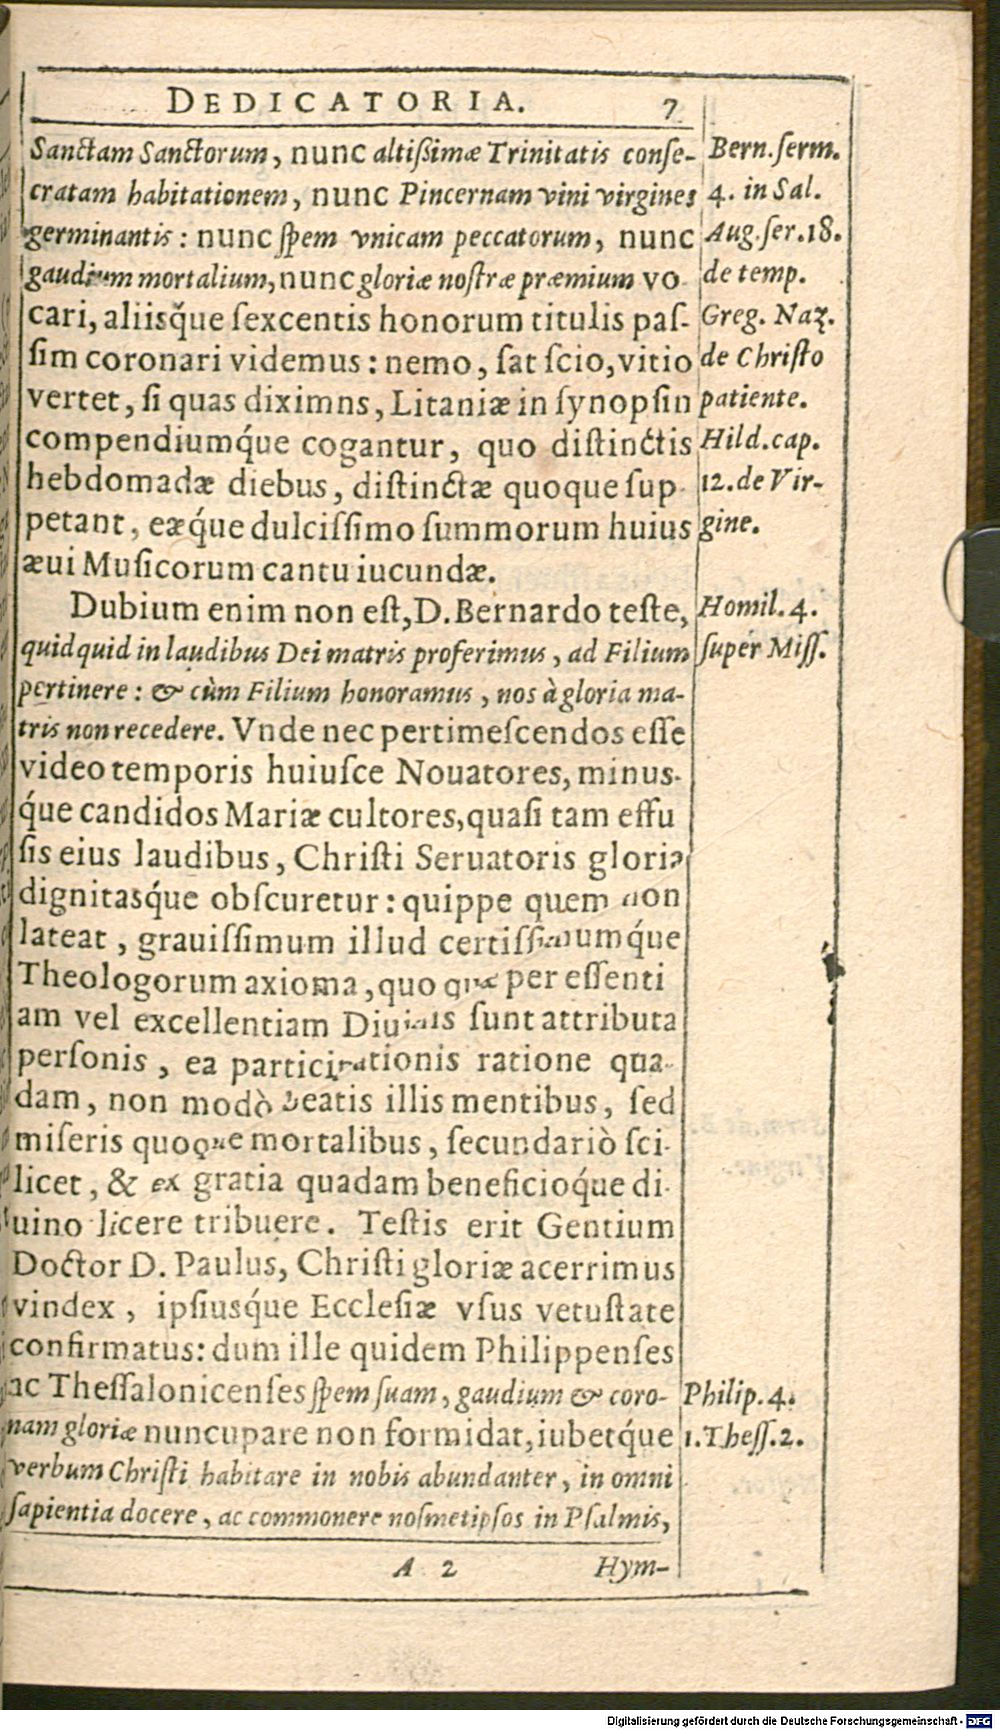 DEDICATORIA. 7
Sanctam Sanctorum, nunc altißimæ Trinitatis conſe-
cratam habitationem, nunc Pincernam vini virgines
germinantis: nunc ſpem vnicam peccatorum, nunc
gaudium mortalium, nunc gloriæ noſtræ præmium vo-
cari, aliiſq́ue ſexcentis honorum titulis paſ-
ſim coronari videmus: nemo, ſat ſcio, vitio
vertet, ſi quas diximns, Litaniæ in ſynopſin
compendiumq́ue cogantur, quo diſtinctis
hebdomadæ diebus, diſtinctæ quoque ſup-
petant, eæq́ue dulciſſimo ſummorum huius
æui Muſicorum cantu iucundæ.
Dubium enim non eſt, D. Bernardo teſte,
quidquid in laudibus Dei matris proferimus, ad Filium
pertinere: & cùm Filium honoramus, nos à gloria ma-
tris non recedere. Vnde nec pertimeſcendos eſſe
video temporis huiuſce Nouatores, minus-
q́ue candidos Mariæ cultores, quaſi tam effu
ſis eius laudibus, Chriſti Seruatoris gloria
dignitasq́ue obſcuretur: quippe quem non
lateat, grauiſſimum illud certiſſimumq́ue
Theologorum axioma, quo quæ per eſſenti
am vel excellentiam Diuinis ſunt attributa
perſonis, ea participationis ratione qua-
dam, non modò beatis illis mentibus, ſed
miſeris quoque mortalibus, ſecundariò ſci-
licet, & ex gratia quadam beneficioq́ue di-
uino licere tribuere. Teſtis erit Gentium
Doctor D. Paulus, Chriſti gloriæ acerrimus
vindex, ipſiusq́ue Eccleſiæ vſus vetuſtate
confirmatus: dum ille quidem Philippenſes
ac Theſſalonicenſes ſpem ſuam, gaudium & coro-
nam gloriæ nuncupare non formidat, iubetq́ue
verbum Chriſti habitare in nobis abundanter, in omni
ſapientia docere, ac commonere noſmetipſos in Pſalmis,
A 2 Hym-
Bern. ſerm.
4. in Sal.
Aug. ſer. 18.
de temp.
Greg. Naz.
de Chriſto
patiente.
Hild. cap.
12. de Vir-
gine.
Homil. 4.
ſuper Miſſ.
Philip. 4.
1. Theſſ. 2.
Digitalisierung gefördert durch die Deutsche Forschungsgemeinschaft - DFG